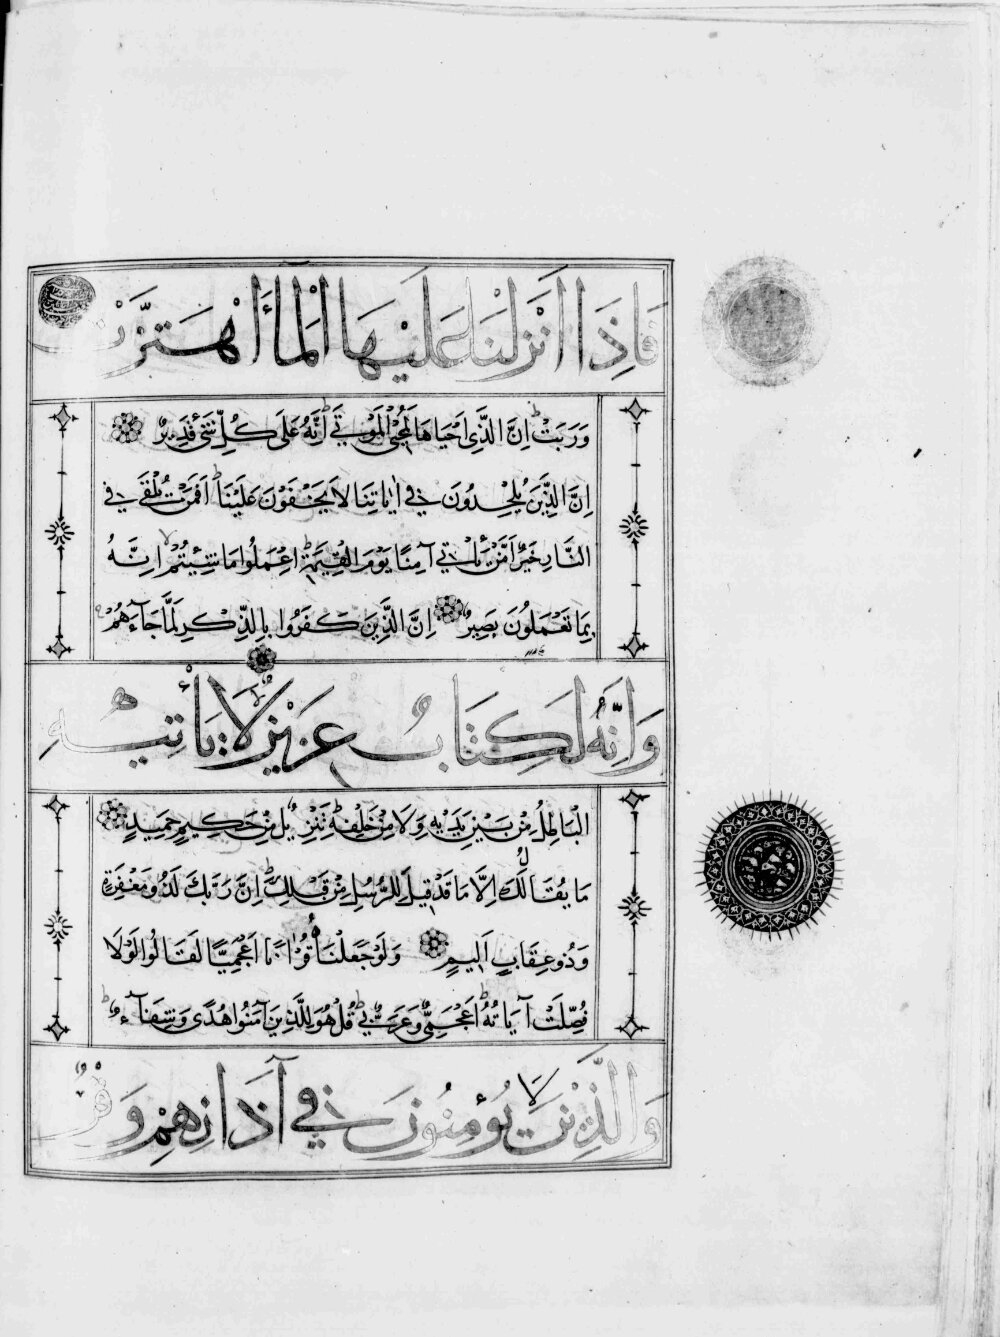 فَاِذَا اَنْزَلْنَا عَلَيْهَا الْمَاۤءَ اهْتَزَّتْ
وَرَبَتْ اِنَّ الَّذِى اَحْيَاهَا لَمُحْيِ الْمَوْتٰى اِنَّهُ عَلَى كُلِّ شَىْءٍ قَدِيرٌ
اِنَّ الَّذِينَ يُلْحِدُونَ فِى اٰيَاتِنَا لَا يَخْفَوْنَ عَلَيْنَا اَفَمَنْ يُلْقٰى فِى
النَّارِ خَيْرٌ اَمْ مَنْ يَأْتِى آمِنًا يَوْمَ الْقِيٰمَةِ اِعْمَلُوا مَا شِئْتُمْ اِنَّهُ
بِمَا تَعْمَلُونَ بَصِيرٌ اِنَّ الَّذِينَ كَفَرُوا بِالذِّكْرِ لَمَّا جَاۤءَهُمْ
وَاِنَّهُ لَكِتَابٌ عَزِيزٌ لَا يَأْتِيهِ
الْبَاطِلُ مِنْ بَيْنِ يَدَيْهِ وَلَا مِنْ خَلْفِهِ تَنْزِيلٌ مِنْ حَكِيمٍ حَمِيدٍ
مَا يُقَالُ لَكَ اِلَّا مَا قَدْ قِيلَ لِلرُّسُلِ مِنْ قَبْلِكَ اِنَّ رَبَّكَ لَذُو مَغْفِرَةٍ
وَذُو عِقَابٍ اَلِيمٍ وَلَوْ جَعَلْنَاهُ قُرْاٰنًا اَعْجَمِيًّا لَقَالُوا لَوْلَا
فُصِّلَتْ آيَاتُهُ اَعْجَمِىٌّ وَعَرَبِىٌّ قُلْ هُوَ لِلَّذِينَ آمَنُوا هُدًى وَشِفَاۤءٌ
وَالَّذِينَ لَا يُؤْمِنُونَ فِى آذَانِهِمْ وَقْرٌ